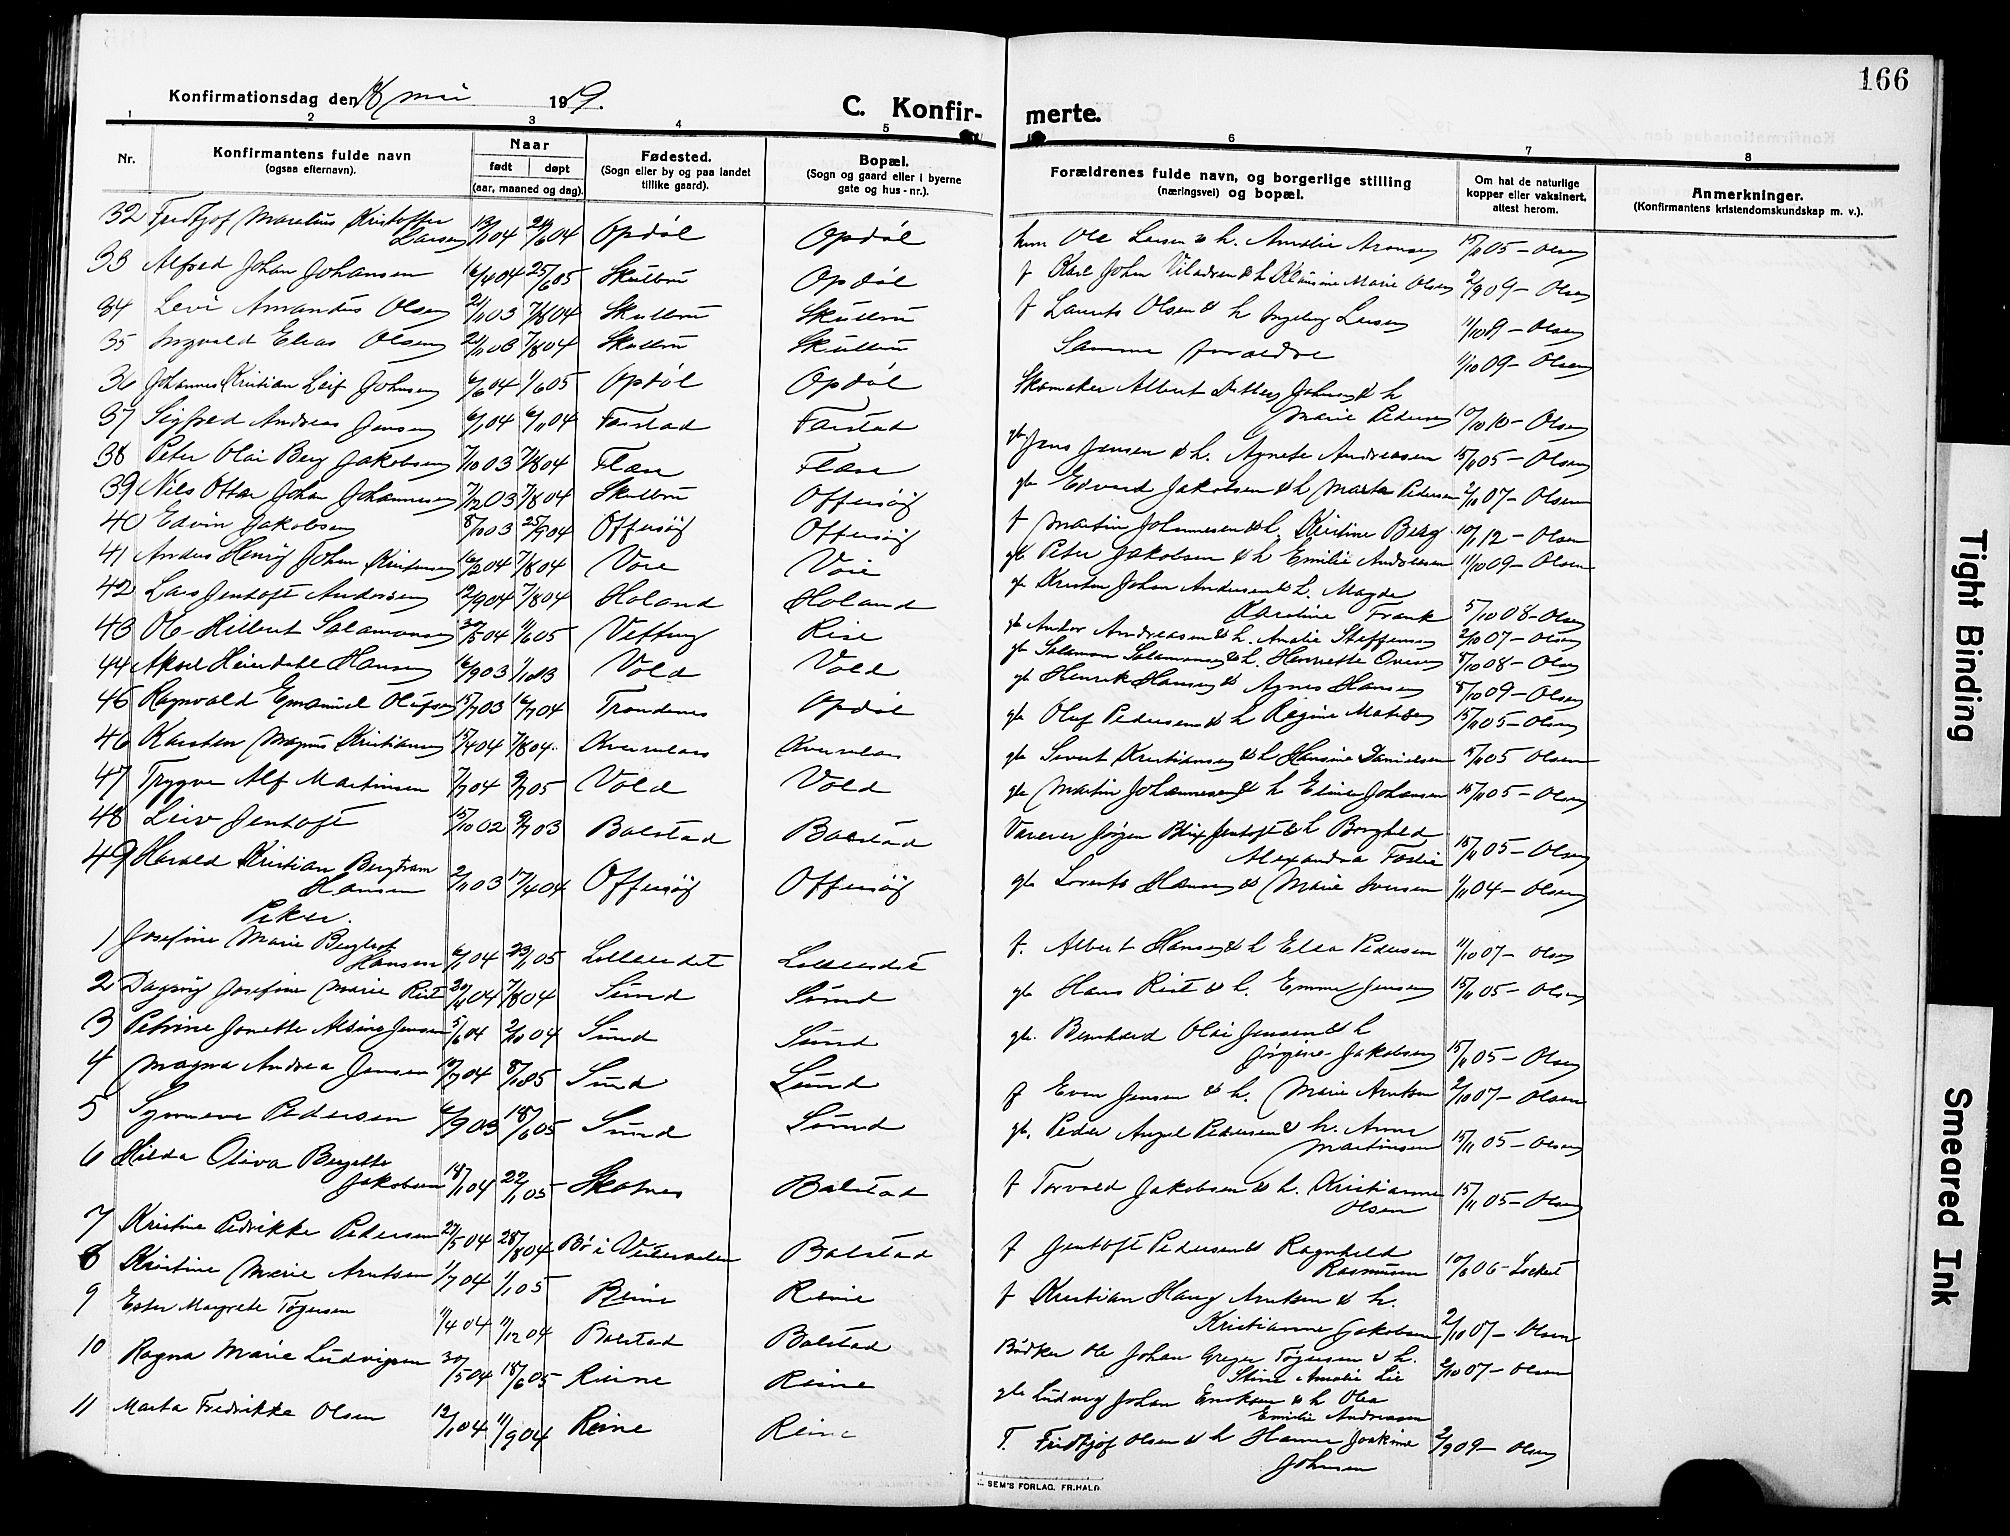 166
Konfirmationsdag den 18 mai 1919.
C. Konfir- merte.
1 2 3 4 5 6 7 8
Nr.
Konfirmantens fulde navn
(ogsaa efternavn).
Naar
født døpt
(aar, maaned og dag).
Fødested.
(Sogn eller by og paa landet
tillike gaard).
Bopæl.
(Sogn og gaard eller i byerne
gate og hus-nr.).
Forældrenes fulde navn, og borgerlige stilling
(næringsvei) og bopæl.
Om hat de naturlige
kopper eller vaksinert,
attest herom.
Anmerkninger.
(Konfirmantens kristendomskundskap m. v.).
32 Fridtjof Marelius Kristoffer
Larsen 13/1 04 24/6 04 Opdøl Opdøl Ole Larsen & h. Amalie Aronsen 15/11 05 - Olsen
33 Alfred Johan Johansen 16/4 04 25/6 05 Skulbru Opdøl f Karl Johan & h Klausine Marie Olsen 2/9 09 - Olsen
34 Levi Amandus Olsen 21/11 03 7/8 04 Skulbru Skulbru f Laurits Olsen & h Ingeborg Larsen 11/10 9 - Olsen
35 Ingvald Elias Olsen 21/11 03 7/8 04 Skulbru Skulbru Samme foraeldre 11/10 09 - Olsen
36 Johannes Kristian Leif Johnsen 6/6 04 1/6 05 Opdøl Opdøl Skomaker Albert Johnsen & h
Marie Pedersen 10/10 10 - Olsen
37 Sigfred Andreas Jensen 6/1 04 6/11 04 Farstad Farstad gb Jens Jensen & h. Agnete Andreasen 15/11 05 - Olsen
38 Peter Olai Berg Jakobsen 7/10 03 7/8 04 Flæse Flæse gb Edvard Jakobsen & h Marta Pedersen 2/10 07 - Olsen
39 Nils Ottar Johan Johannesen 7/12 03 7/8 04 Skulbru Offersøy f Martin Johannesen & h. Kristine Berg 10/1 12 - Olsen
40 Edvin Jakobsen 8/10 03 25/9 04 Offersøy Offersøy gb Peter Jakobsen & h Emilie Andreasen 11/10 09 - Olsen
41 Anders Henry Johan Kristensen 16/2 04 7/8 04 Voie Voie gb Kristen Johan Andersen & h. Magda
Karoline Frank 5/10 08 - Olsen
42 Lars Jentoft Andersen 12/9 04 7/8 04 Holand Holand gb Andor Andreasen & h. Amalie Steffensen 2/10 07 - Olsen
43 Ole Hilbert Salamonsen 30/5 04 11/6 05 Vefting Rise gb Salamon Salamonsen & h. Henriette Ovesen 8/10 08 - Olsen
44 Aksel Heierdahl Hansen 16/9 03 Vold Vold gb Henrik Hansen & Agnes Hansen 8/10 09 - Olsen
45 Ragnvald Emanuel Olufsen 15/7 03 16/7 04 Trondenes Opdøl gb Oluf Pedersen & h Regine 15/11 05 - Olsen
46 Karsten Magnus Kristiansen 15/4 04 7/8 04. Kvernlars Kvernlars gb Severt Kristiansen & h Hansine Danielsen 15/11 05 Olsen
47 Trygve Alf Martinsen 7/1 04 9/7 05 Vold Vold gb Martin Johannesen & h Eline Johansen 15/11 05 - Olsen
48 Leiv Jentoft 15/10 02 9/7 03 Balstad Balstad Væreier Jørgen Blix Jentoft & h Borghild
Alexandra Foslie 15/11 05 - Olsen
49 Harald Kristian Bergtram
Hansen 2/11 03 17/4 04 Offersøy Offersøy gb Lorents Hansen & Marie Iversen 1/11 04 - Olsen
Piker.
1 Josefine Marie Berglott
Hansen 6/1 04 23/1 05 Lilleeidet Lilleeidet f. Albert Hansen & h Elea Pedersen 11/10 07 - Olsen
2 Dagny Josefine Marie Rist 20/4 04 7/8 04 Sund Sund gb Hans Rist & h. Emma Jensen 15/11 05 - Olsen
3 Petrine Jonette Alsine Jensen 5/6 04 2/10 04 Sund Sund gb. Bernhard Olai Jensen & h
Jørgine Jakobsen 15/11 05 - Olsen
4 Magna Andrea Jensen 10/7 04 8/1 05 Sund Sund f Even Jensen & h. Marie Arntsen 2/10 07 - Olsen
5 Synnøve Pedersen 6/9 03 18/6 05 Sund Sund gb. Peder Angel Pedersen & h. Anna
Martinsen 15/11 05 - Olsen
6 Hilda Oliva Bergette
Jakobsen 18/1 04 22/1 05 Skotnes Balstad f Torvald Jakobsen & h. Kristianna
Olsen 15/11 05 - Olsen
7 Kristine Fedrikke Pedersen 27/5 04 28/8 04 Bø i Vesteraalen Balstad f Jentoft Pedersen & Ragnhild
Rasmussen 10/6 06 - Lockert
8 Kristine Marie Arntsen 1/7 04 1/1 05 Reine Reine f Kristian Haug Arntsen & h.
Kristianne Jakobsen 2/10 07 - Olsen
9 Ester Margrete Tøgersen 11/4 04 11/12 04 Balstad Balstad Bødker Ole Johan Greger Tøgersen & h.
Stina Amalie Lie 2/10 07 - Olsen
10 Ragna Marie Ludvigsen 30/5 04 18/6 05 Reine Reine gb Ludvig Johan Enoksen & h Olea
Emilie Andreassen
11 Marta Fredrikke Olsen 12/1 04 11/9 04 Reine Reine T. Fridtjof Olsen & h Hanna Joakime
Johnsen 2/9 09 - Olsen
SEM'S FORLAG, FR.HALD.
Tight Binding
Smeared Ink